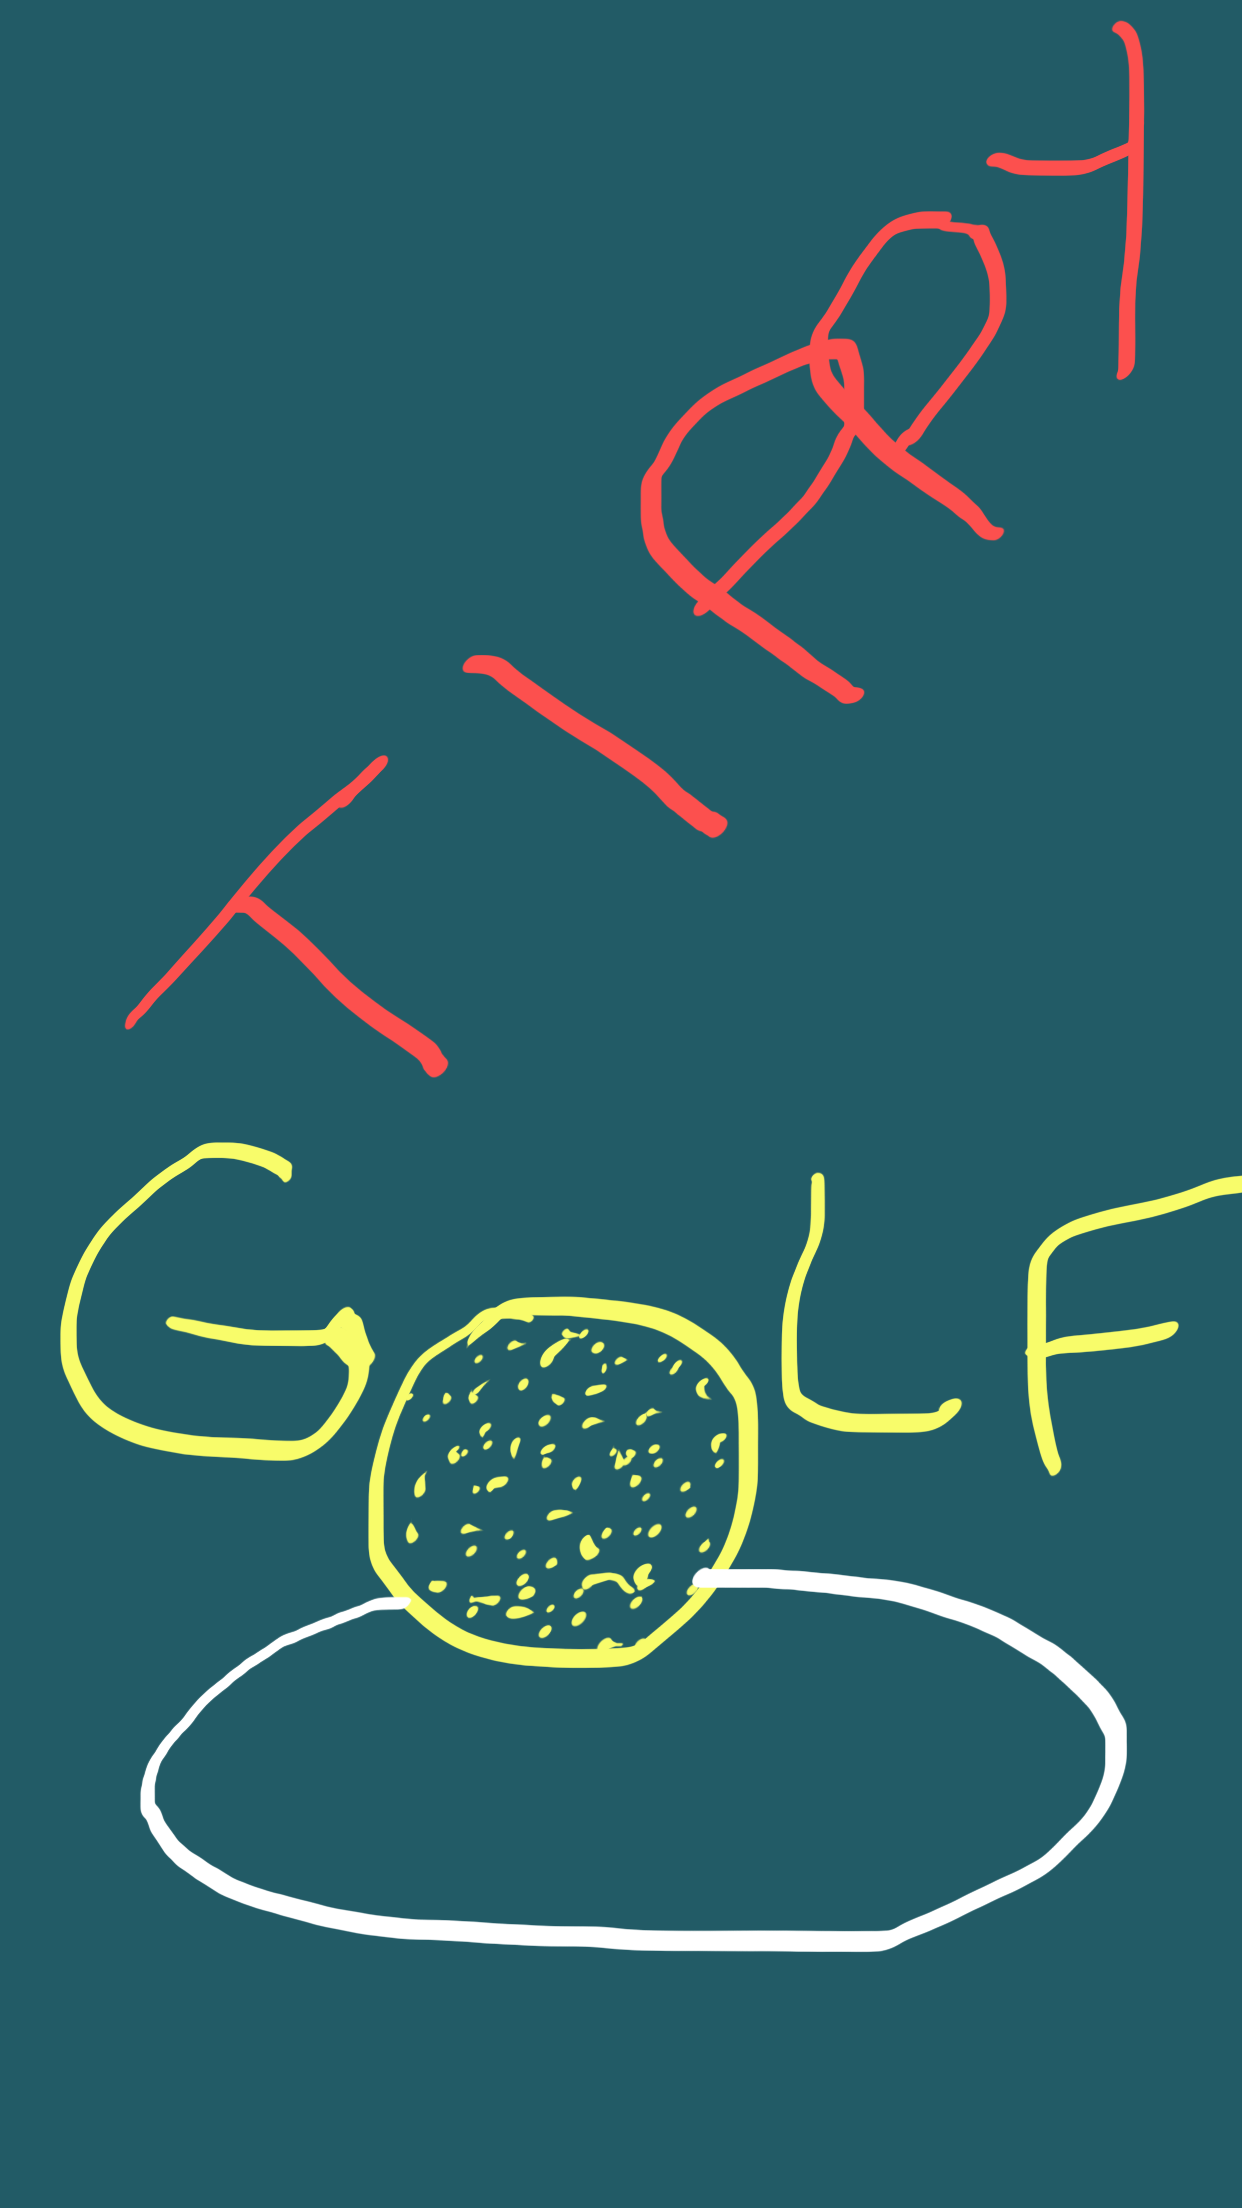 TIPPY
GOLF